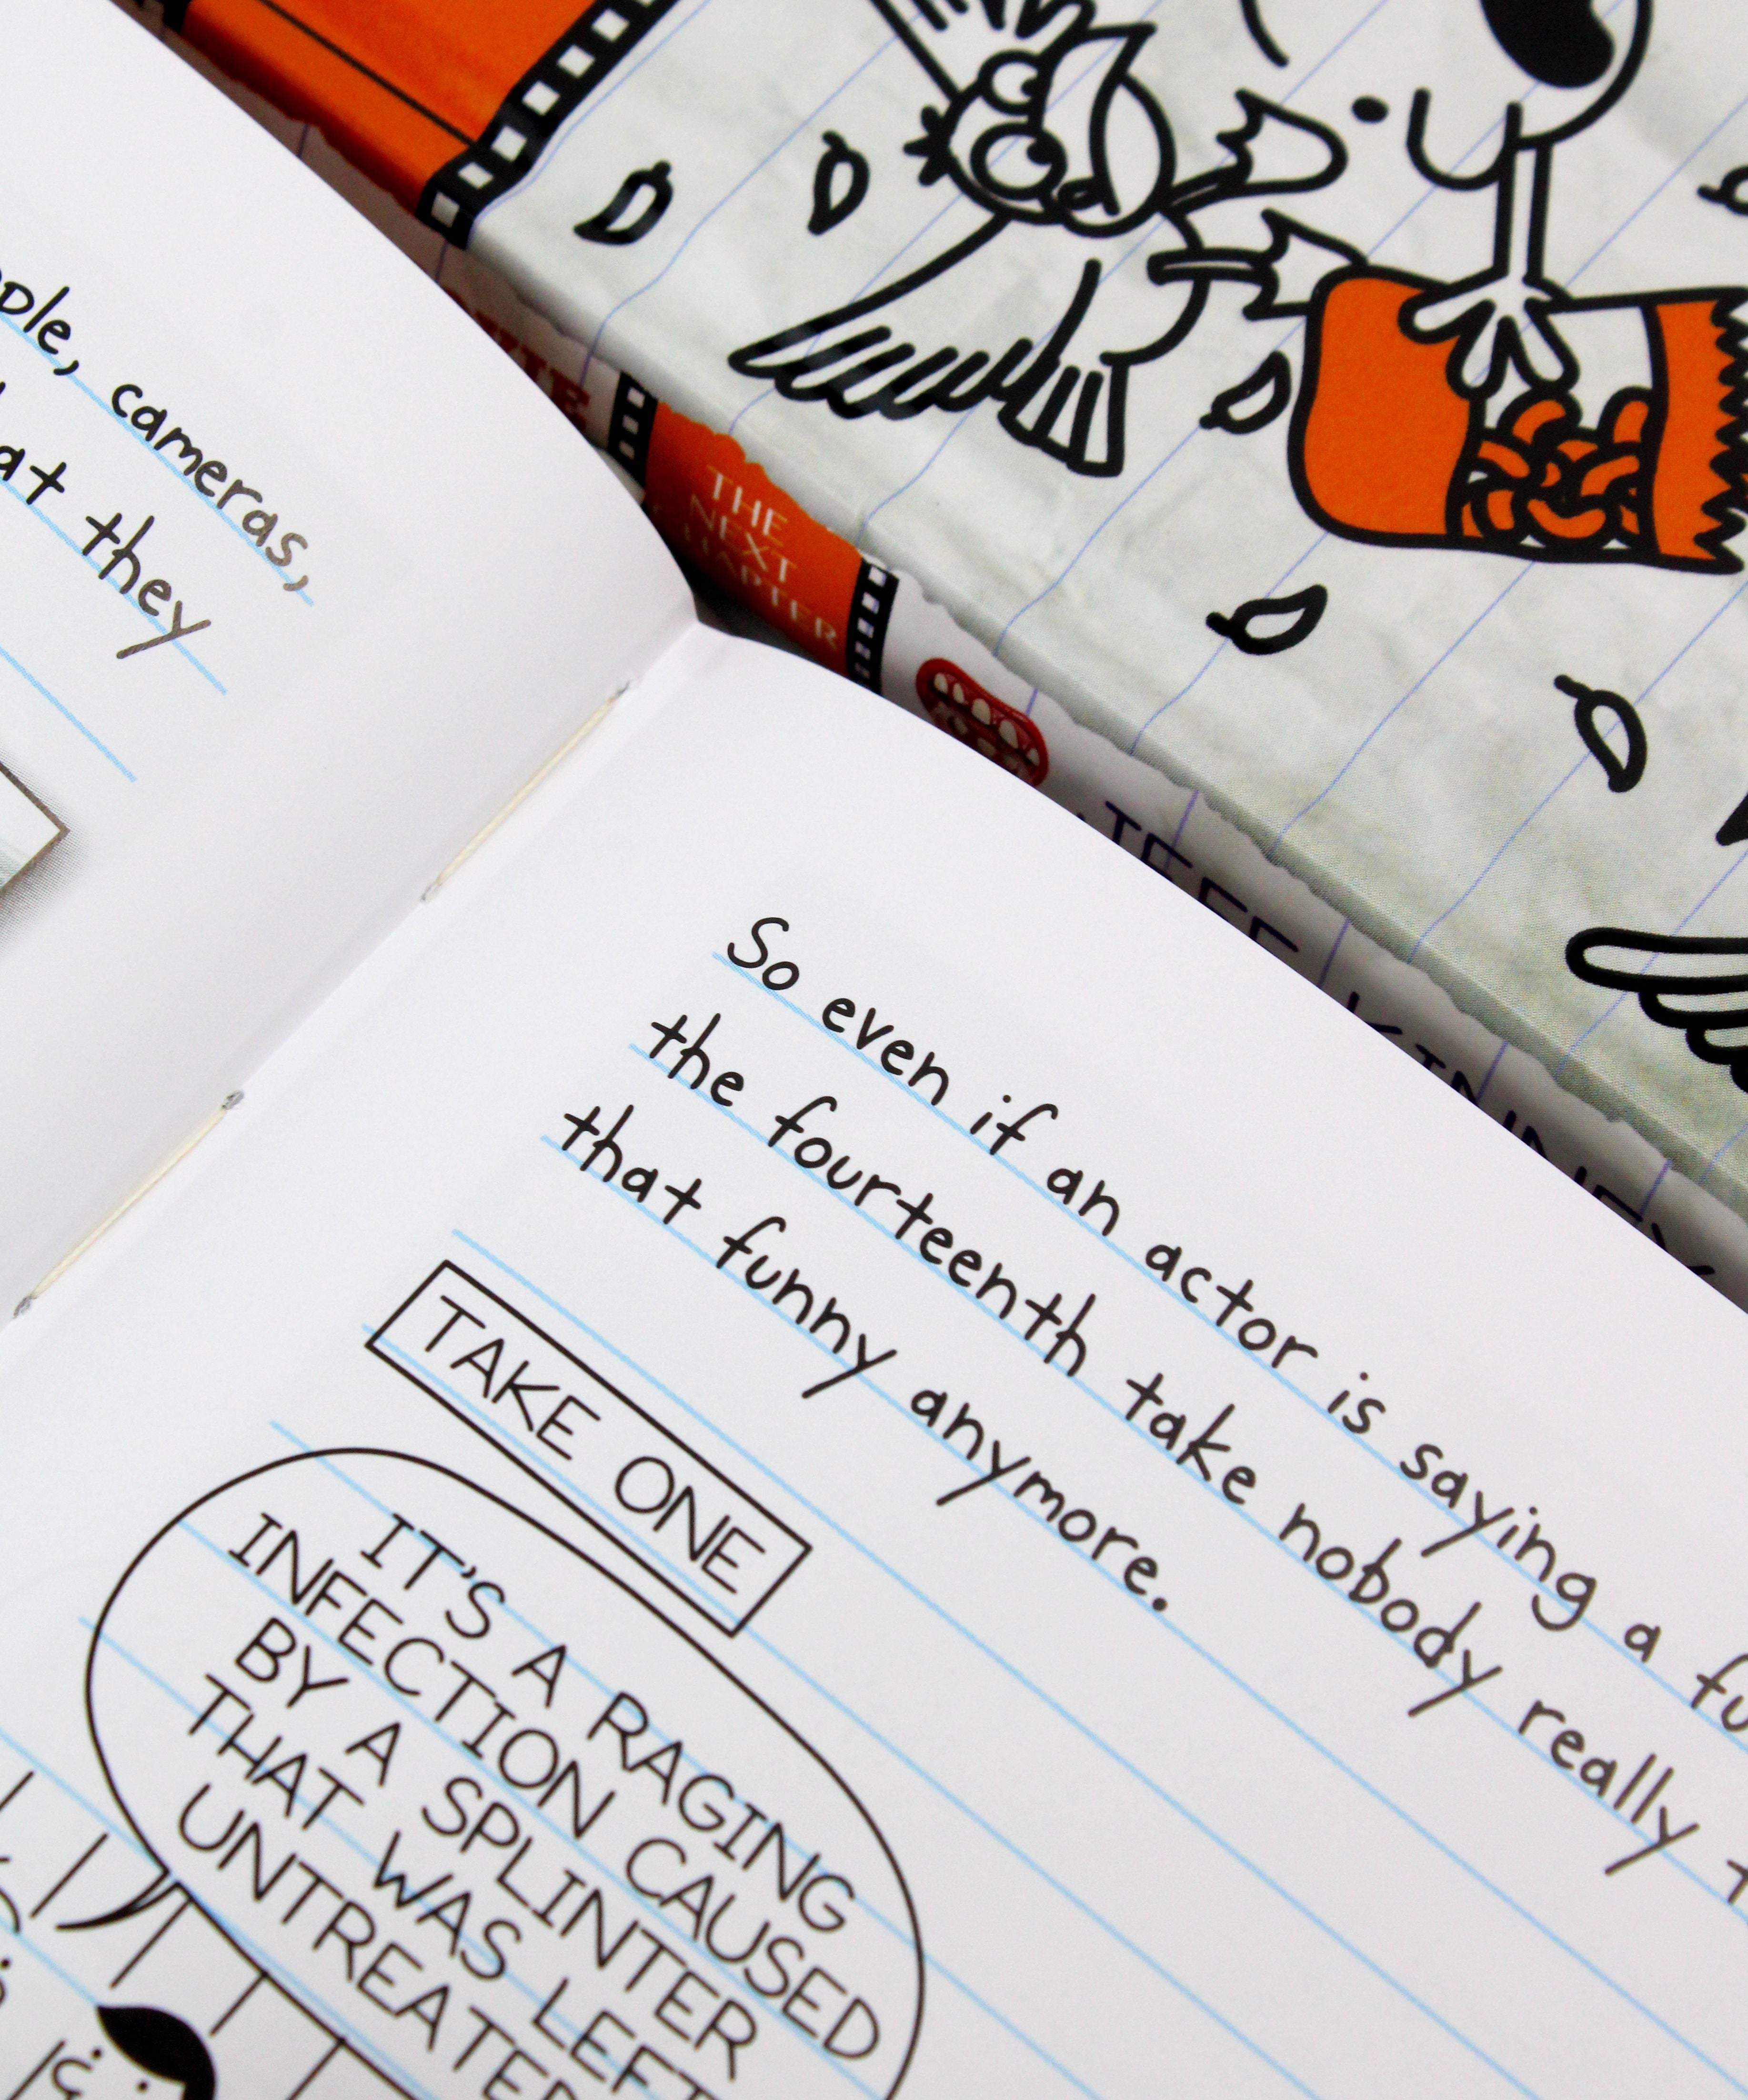 cameras,
they
So even if an actor is saying a
the fourteenth take nobody really
that funny anymore.
TAKE ONE
IT'S A RAGING
INFECTION CAUSED
BY A SPLINTER
THAT WAS LEFT
UNTREATED
THE
NEXT
CHAPTER
JEFF KINNEY